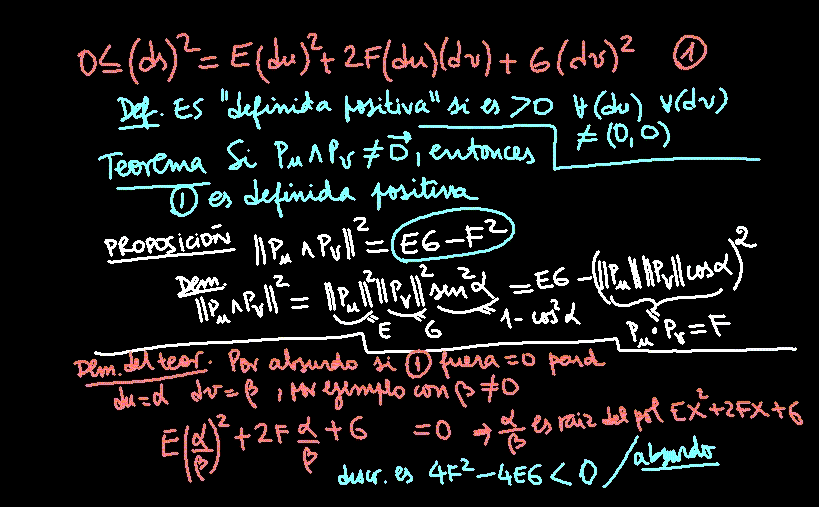 0≤(ds)² = E(du)² + 2F(du)(dv) + G(dv)² ①
Def. ES "definida positiva" si es >0 ∀(du) ∨(dv)
≠(0,0)
Teorema Si Pu ∧ Pv ≠ 0⃗, entonces
① es definida positiva
PROPOSICIÓN ‖Pu ∧ Pv‖² = EG - F²
Dem.
‖Pu ∧ Pv‖² = ‖Pu‖² ‖Pv‖² sin²α = EG - (‖Pu‖ ‖Pv‖ cosα)²
E G 1 - cos²α Pu · Pv = F
Dem. del teor. Por absurdo si ① fuera = 0 para
du = α dv = β, por ejemplo con β ≠ 0
E(α/β)² + 2F α/β + G = 0 → α/β es raiz del pol EX² + 2FX + G
discr. es 4F² - 4EG < 0 / absurdo